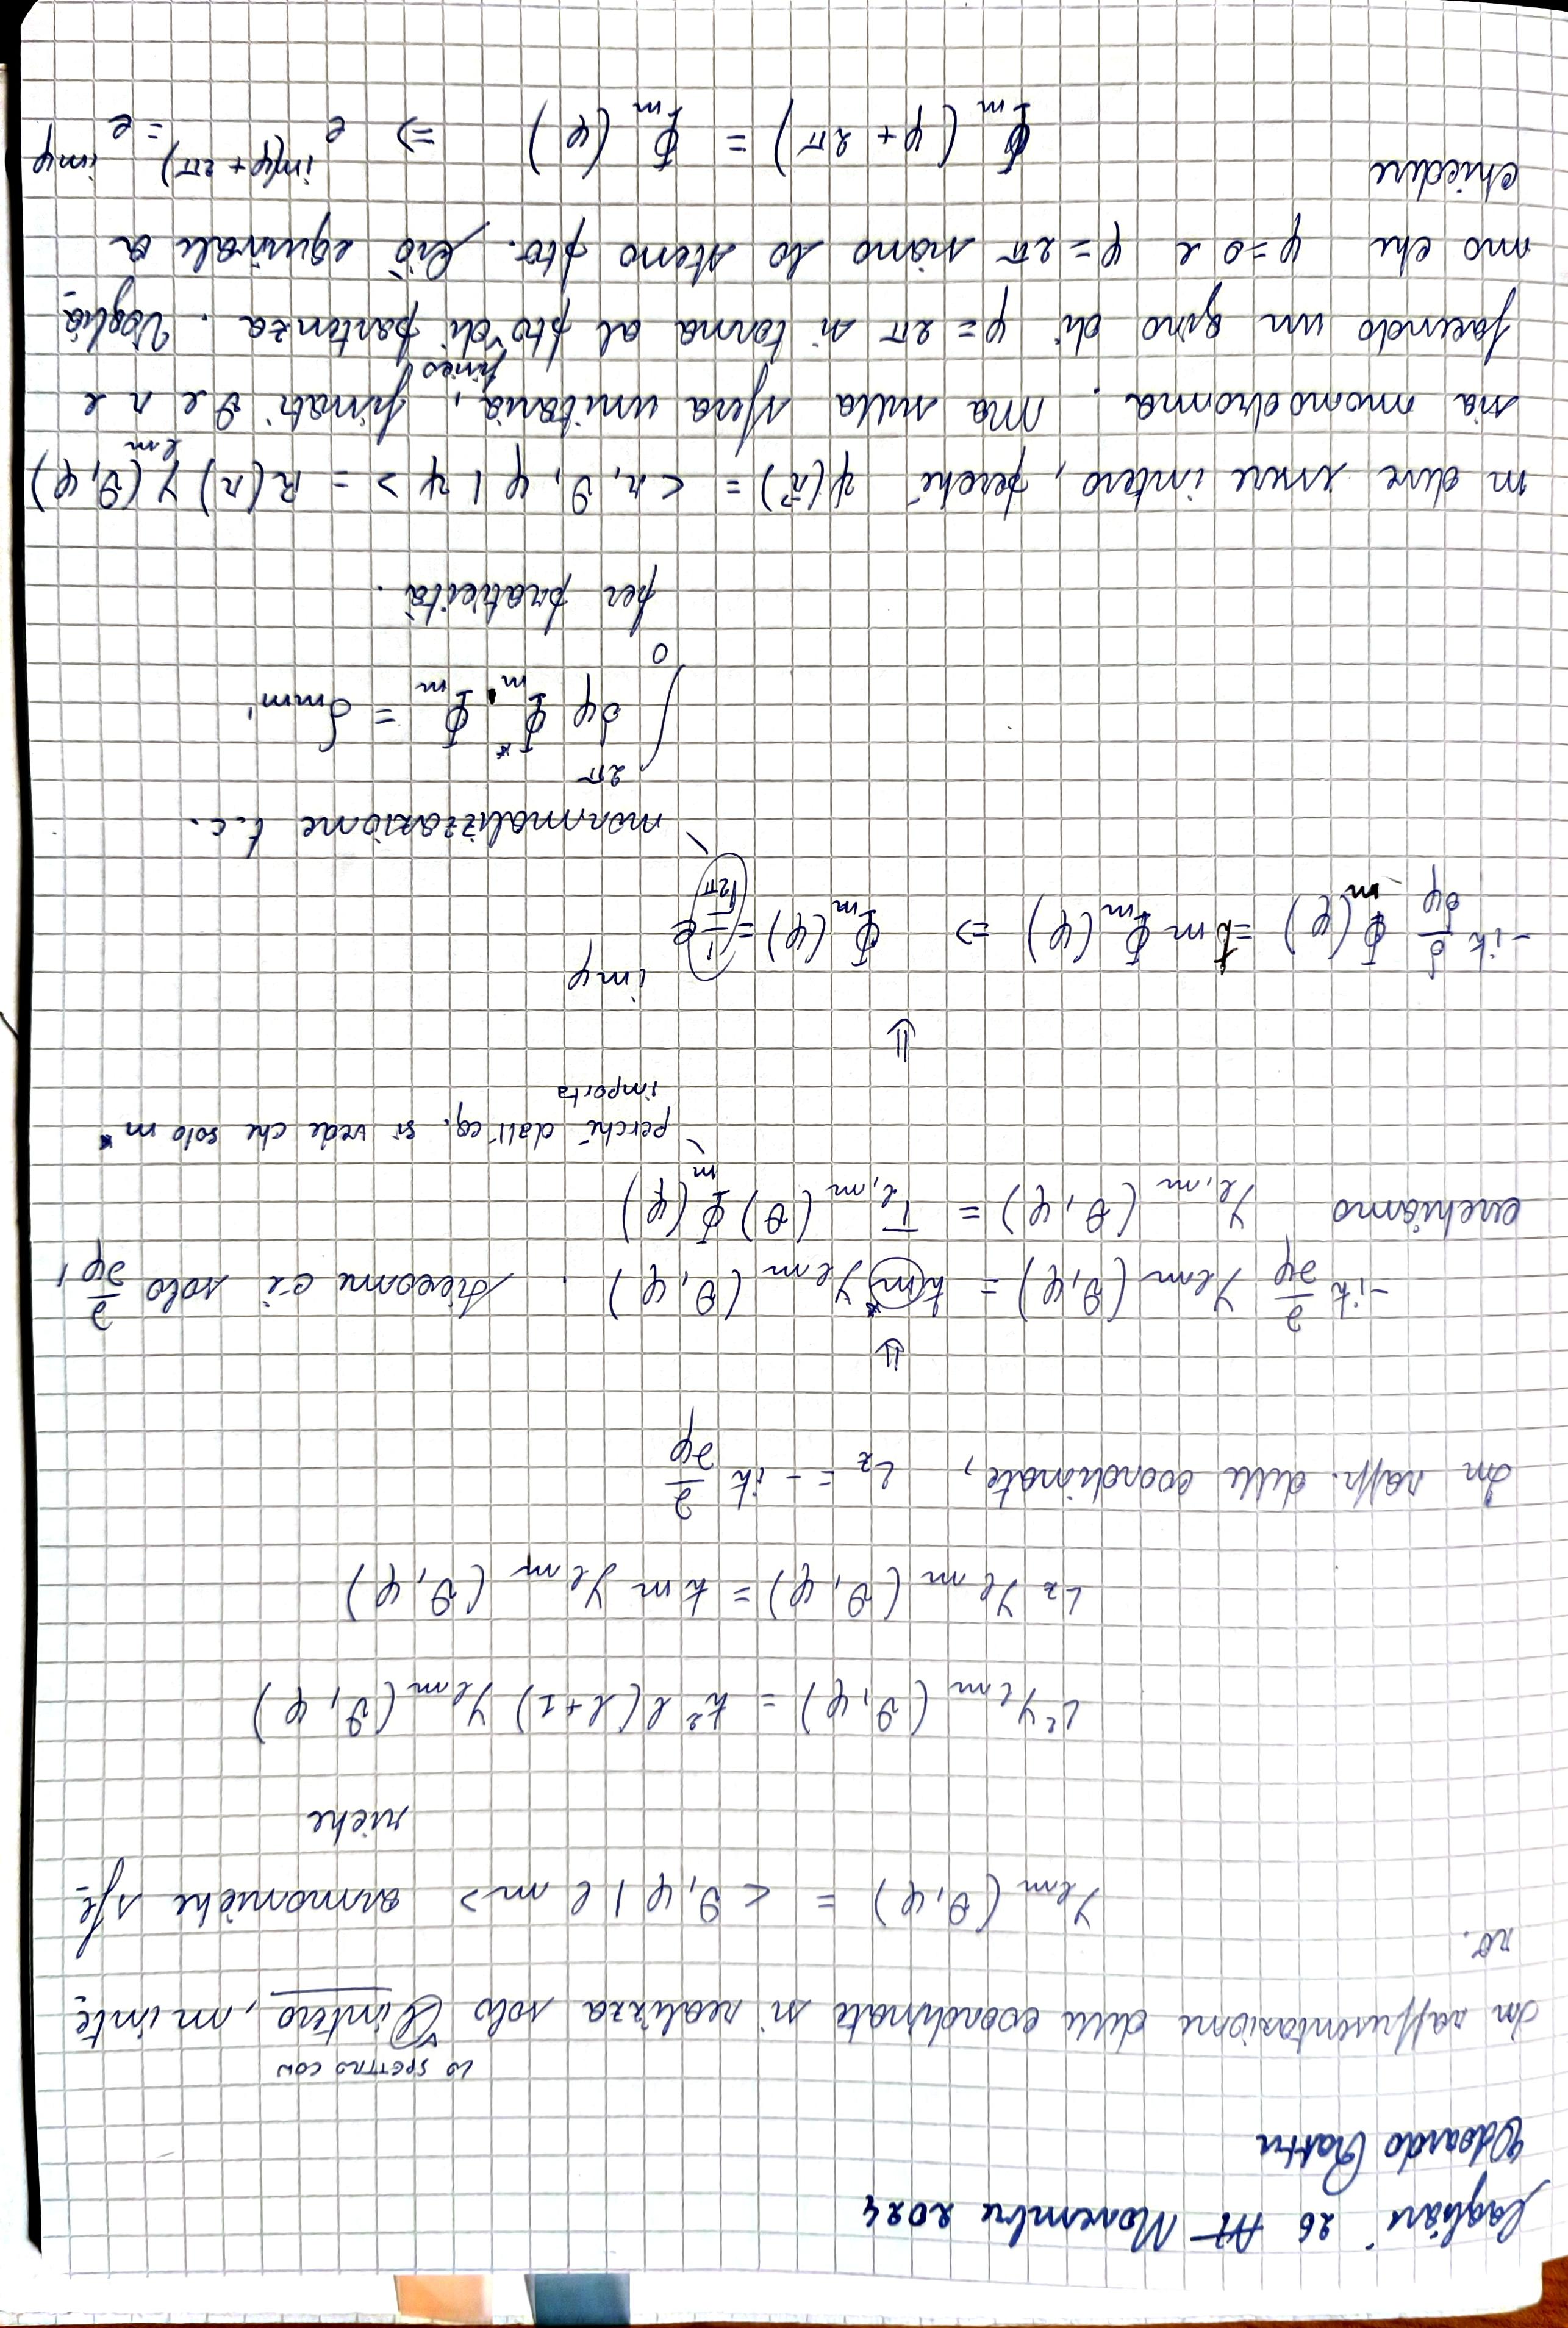 Cagliari 26 Novembre 2024
Edoardo Rattu
LO SPETTRO CON
In rappresentazione delle coordinate si realizza solo l intero, m inte
ro.
Y_{lm}(ϑ,φ) = <ϑ,φ|l m> armoniche sfe
riche
L² Y_{lm}(ϑ,φ) = ħ² l(l+1) Y_{lm}(ϑ,φ)
L_z Y_{lm}(ϑ,φ) = ħ m Y_{lm}(ϑ,φ)
In rappr. delle coordinate, L_z = -iħ ∂/∂φ
⇓
-iħ ∂/∂φ Y_{lm}(ϑ,φ) = ħ m* Y_{lm}(ϑ,φ). Siccome c'è solo ∂/∂φ,
cerchiamo Y_{l,m}(ϑ,φ) = T_{l,m}(ϑ) Φ_m(φ)
perché dall'eq. si vede che solo m*
importa
⇓
-iħ d/dφ Φ_m(φ) = ħ m Φ_m(φ) ⇒ Φ_m(φ) = 1/√2π e^{imφ}
normalizzazione t.c.
∫_0^{2π} dφ Φ*_{m'} Φ_m = δ_{mm'}
per praticità.
m deve essere intero, perché ψ(r⃗) = <r, ϑ, φ|ψ> = R(r) Y_{lm}(ϑ,φ)
sia monodroma. Ma sulla sfera unitaria, fissati ϑ e r e
fisico
facendo un giro di φ = 2π si torna al pto di partenza. Voglia
mo che φ=0 e φ=2π siano lo stesso pto. Ciò equivale a
chiedere
Φ_m(φ + 2π) = Φ_m(φ) ⇒ e^{im(φ+2π)} = e^{imφ}